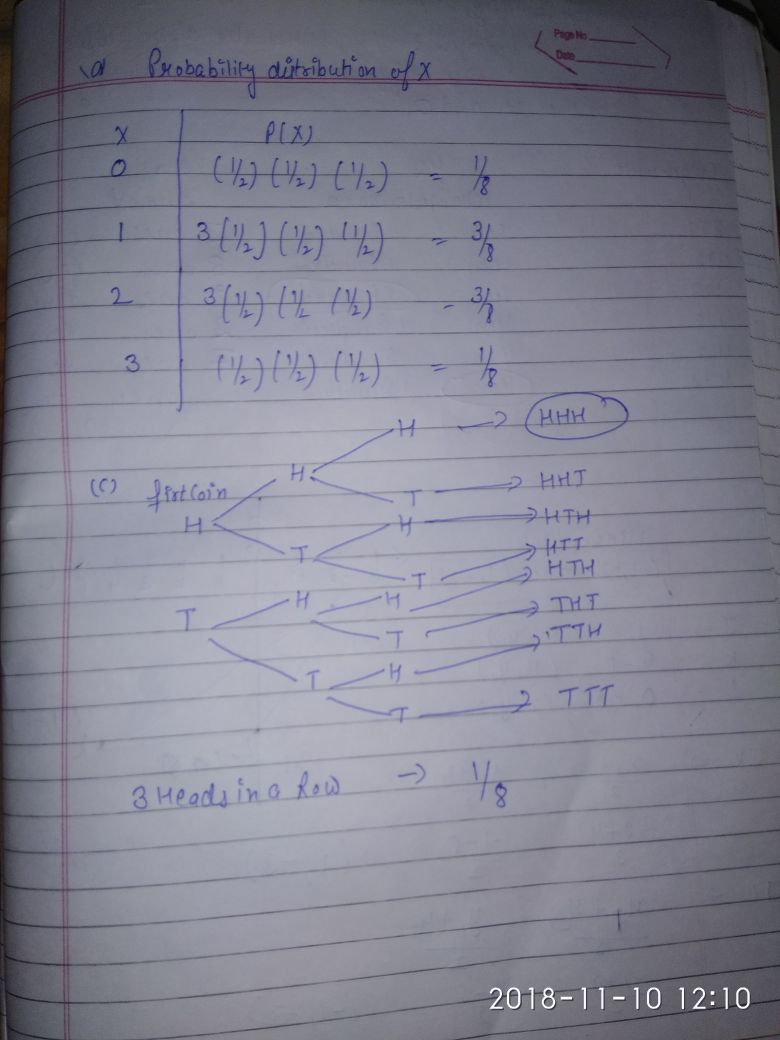 Page No
Date
(a) Probability distribution of X
X P(X)
0 (1/2) (1/2) (1/2) = 1/8
1 3(1/2) (1/2) (1/2) = 3/8
2 3(1/2) (1/2 (1/2) - 3/8
3 (1/2) (1/2) (1/2) = 1/8
H → HHH
(C) first Coin H
T → HHT
H H → HTH
T → HTT
T → HTH
T H H
T → THT
T H → TTH
T → TTT
3 Heads in a Row → 1/8
2018-11-10 12:10